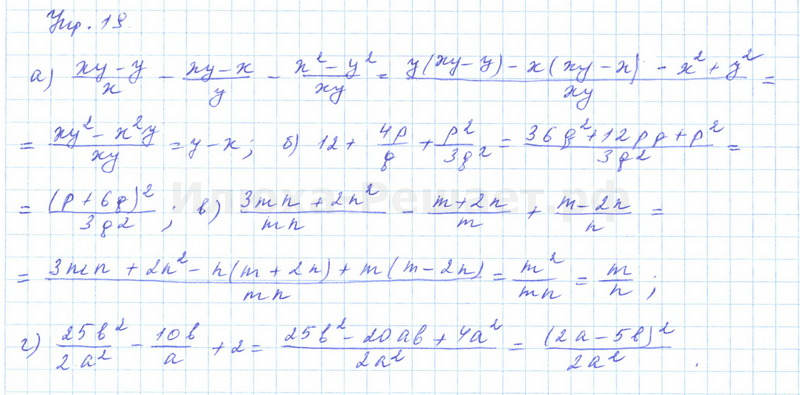 Упр. 19
а) (xy-y)/x - (xy-x)/y - (x²-y²)/xy = (y(xy-y)-x(xy-x)-x²+y²)/xy =
= (xy²-x²y)/xy = y-x; б) 12 + 4p/q + p²/3q² = (36q²+12pq+p²)/3q² =
= (p+6q)²/3q²; в) (3mn+2n²)/mn - (m+2n)/m + (m-2n)/n =
= (3mn+2n²-n(m+2n)+m(m-2n))/mn = m²/mn = m/n;
г) 25b²/2a² - 10b/a + 2 = (25b²-20ab+4a²)/2a² = (2a-5b)²/2a².